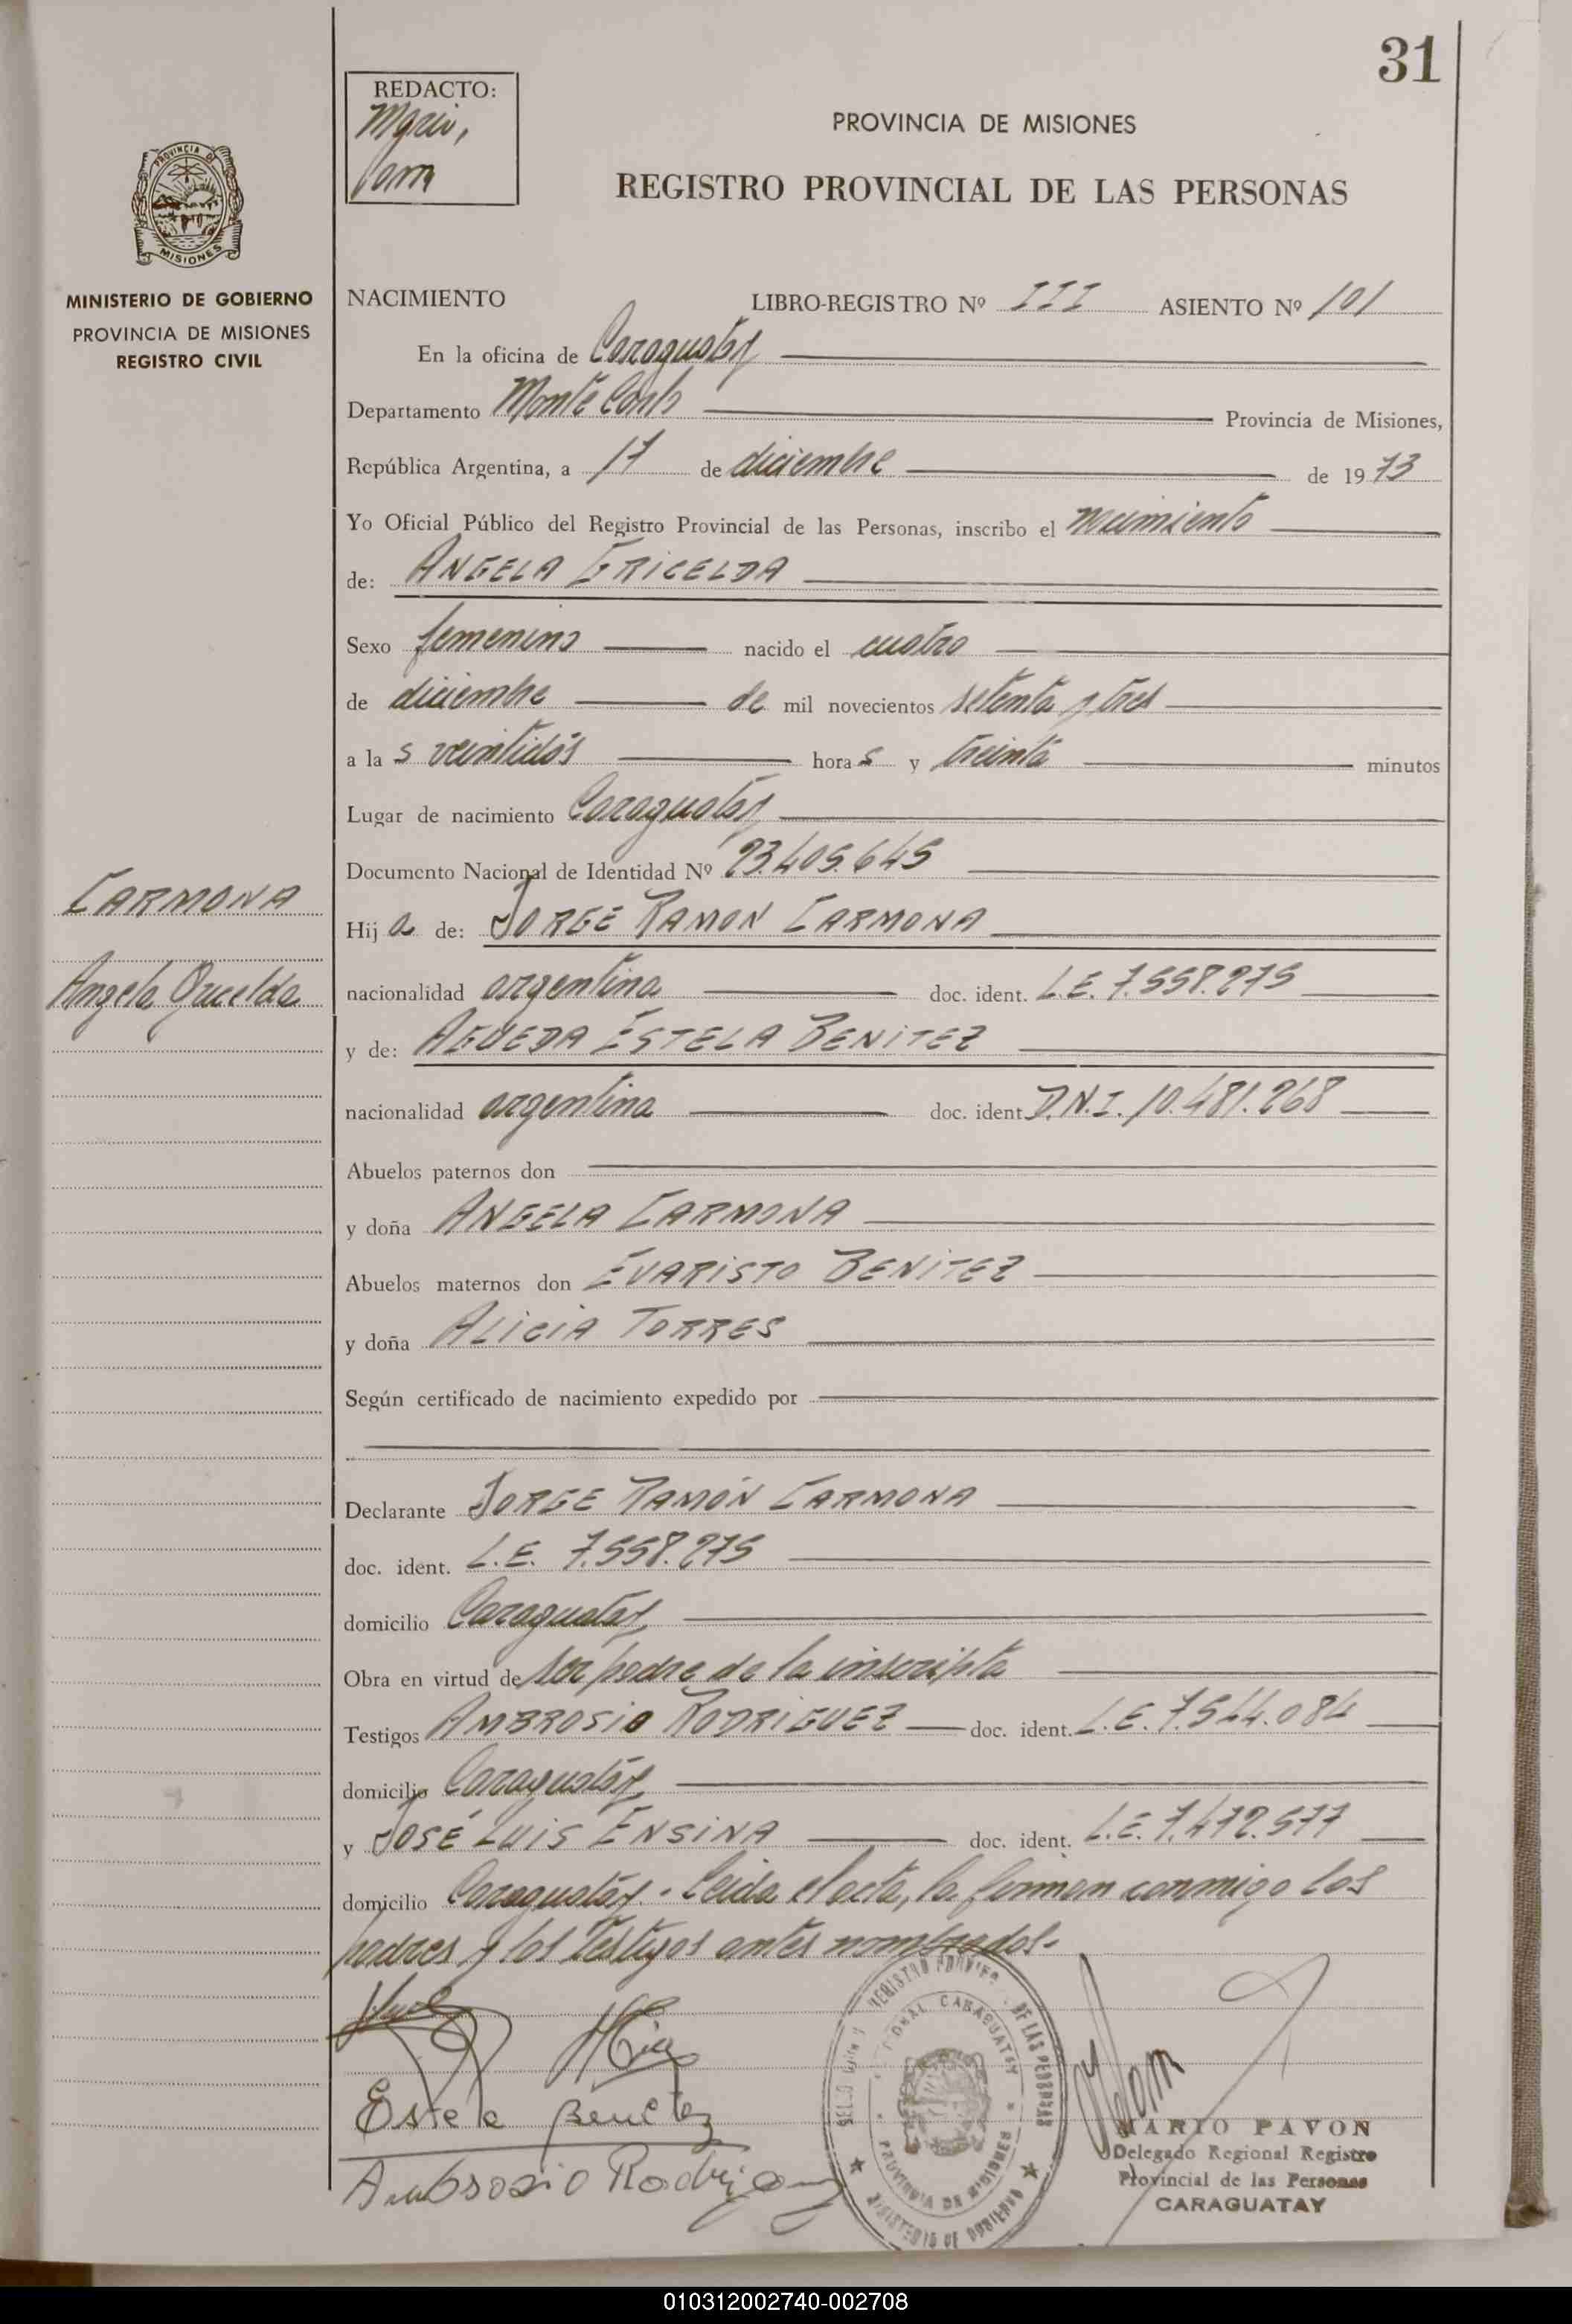 31
REDACTO:
PROVINCIA DE MISIONES
REGISTRO PROVINCIAL DE LAS PERSONAS
PROVINCIA DE
MISIONES
MINISTERIO DE GOBIERNO
PROVINCIA DE MISIONES
REGISTRO CIVIL
NACIMIENTO LIBRO-REGISTRO Nº III ASIENTO Nº 101
En la oficina de Caraguatay
Departamento Monte Carlo Provincia de Misiones,
República Argentina, a 17 de diciembre de 1973
Yo Oficial Público del Registro Provincial de las Personas, inscribo el nacimiento
de: ANGELA GRICELDA
Sexo femenino nacido el cuatro
de diciembre de mil novecientos setenta y tres
a las veintidós horas y treinta minutos
Lugar de nacimiento Caraguatay
Documento Nacional de Identidad Nº 23.405.645
CARMONA
Angela Gricelda
Hija de: JORGE RAMON CARMONA
nacionalidad argentina doc. ident. L.E. 7.558.275
y de: AGUEDA ESTELA BENITEZ
nacionalidad argentina doc. ident. D.N.I. 10.481.268
Abuelos paternos don
y doña ANGELA CARMONA
Abuelos maternos don EVARISTO BENITEZ
y doña ALICIA TORRES
Según certificado de nacimiento expedido por
Declarante JORGE RAMÓN CARMONA
doc. ident. L.E. 7.558.275
domicilio Caraguatay
Obra en virtud de ser padre de la inscripta
Testigos AMBROSIO RODRIGUEZ doc. ident. L.E. 7.544.084
domicilio Caraguatáy
y JOSÉ LUIS ENSINA doc. ident. L.E. 7.472.577
domicilio Caraguatáy. Leida el acta, la firman conmigo los
padres y los testigos antes nombrados.
Estela Benitez
Ambrosio Rodriguez
CARAGUATAY
PROVINCIA DE MISIONES
MINISTERIO DE GOBIERNO
MARIO PAVON
Delegado Regional Registro
Provincial de las Personas
CARAGUATAY
010312002740-002708